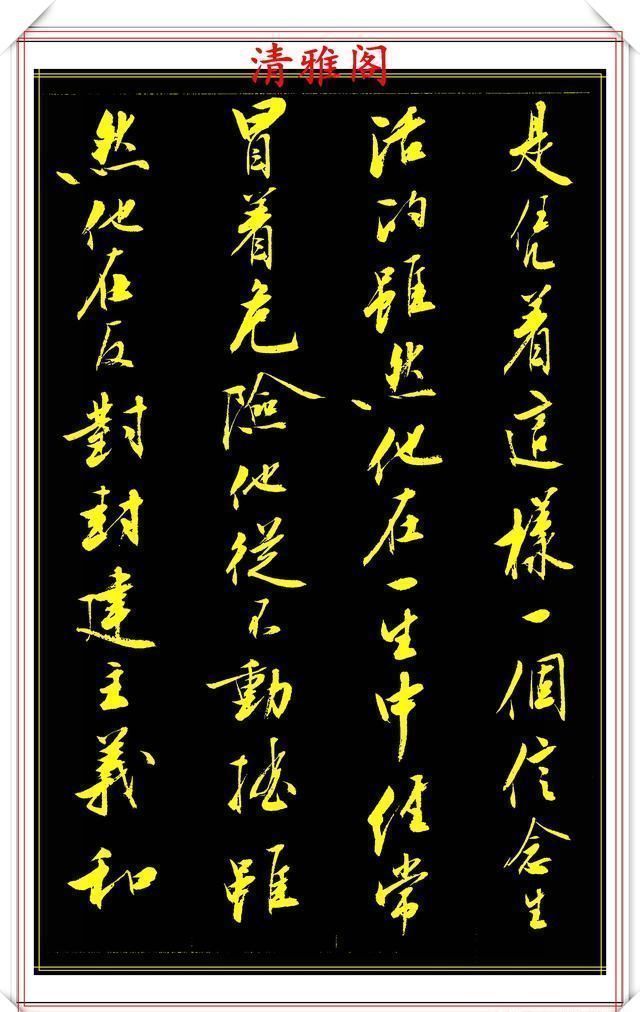 清雅阁
是凭着這樣一個信念生
活的雖然他在一生中經常
冒着危險他從不動搖雖
然他在反對封建主義和